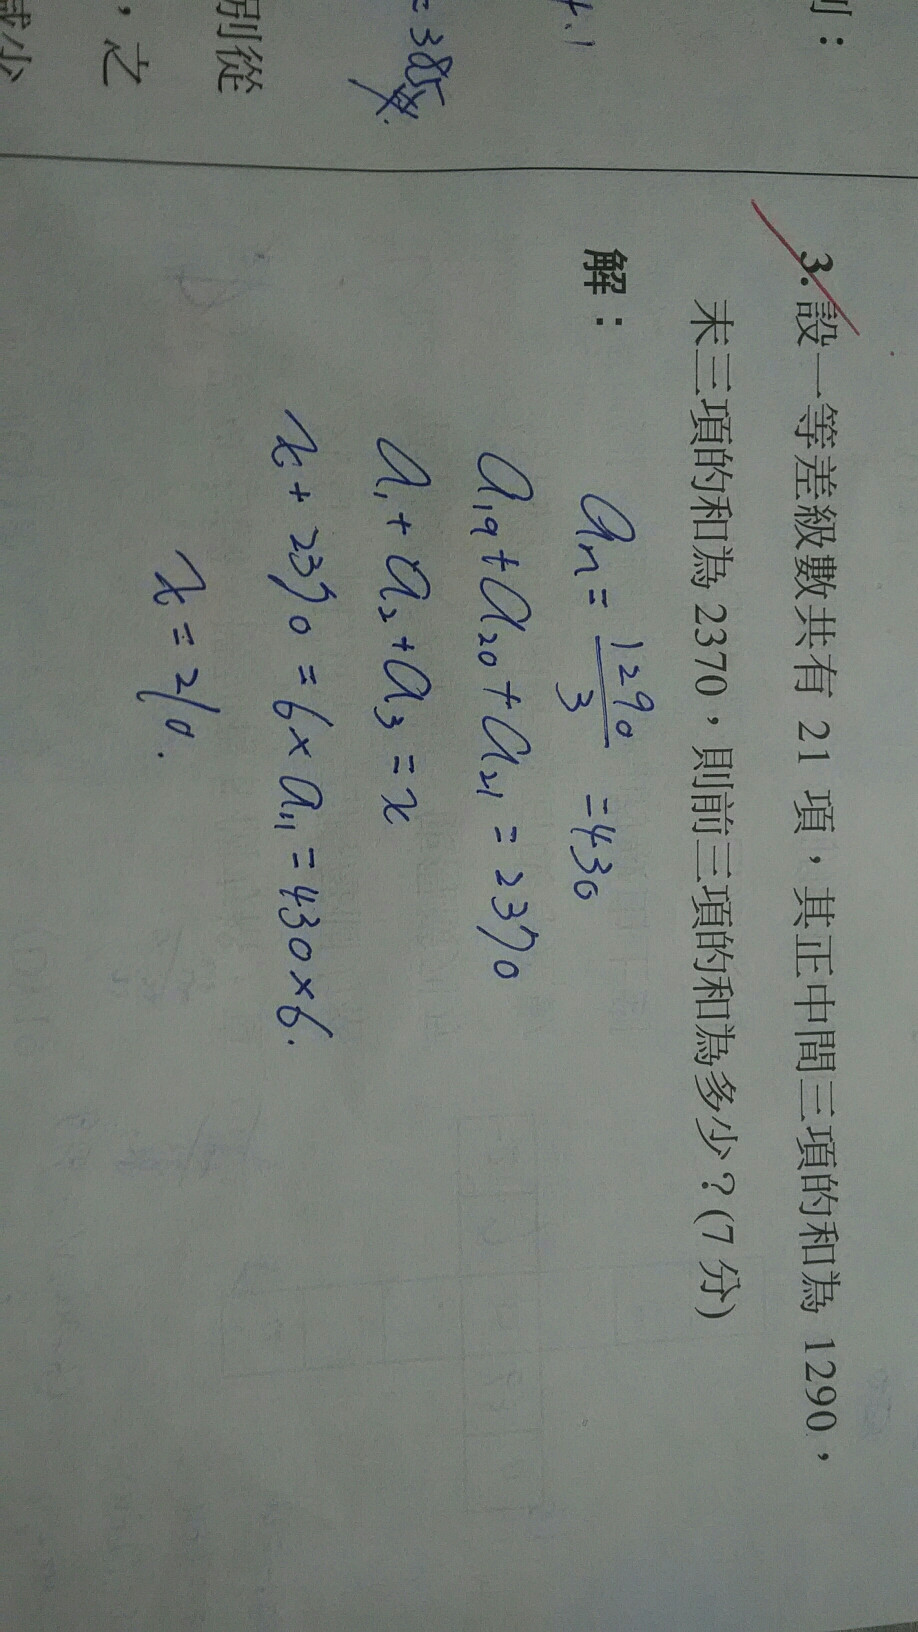 別：
4.1
= 385
別從
，之
減少
3.設一等差級數共有 21 項，其正中間三項的和為 1290，
末三項的和為 2370，則前三項的和為多少？(7 分)
解：
a₁₁ = 1290/3 = 430
a₁₉ + a₂₀ + a₂₁ = 2370
a₁ + a₂ + a₃ = x
x + 2370 = 6 × a₁₁ = 430 × 6.
x = 210.